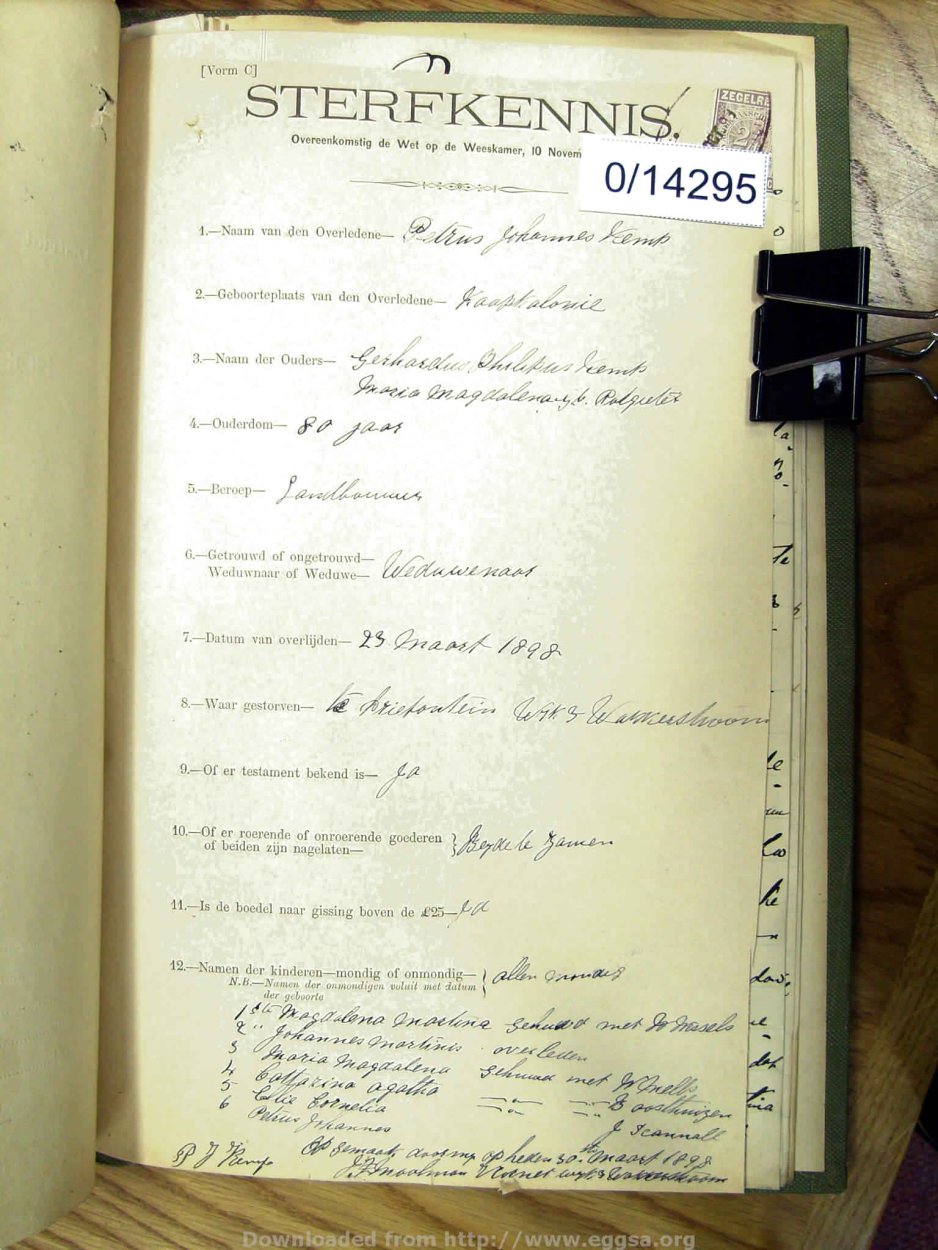 [Vorm C]
STERFKENNIS.
ZEGELRE
Overeenkomstig de Wet op de Weeskamer, 10 Novem
0/14295
1.—Naam van den Overledene— Petrus Johannes Kemp
2.—Geboorteplaats van den Overledene— Kaapkalonie
3.—Naam der Ouders— Gerhardus Philipus Kemp
Maria Magdalena geb. Potgieter
4.—Ouderdom— 80 jaar
5.—Beroep— Landbouwer
6.—Getrouwd of ongetrouwd—
Weduwnaar of Weduwe— Weduwenaar
7.—Datum van overlijden— 23 Maart 1898
8.—Waar gestorven— te Driefontein Wyk 3 Wakkerstroom
9.—Of er testament bekend is— Ja
10.—Of er roerende of onroerende goederen
of beiden zijn nagelaten— } Beyde te Zamen
11.—Is de boedel naar gissing boven de £25— Ja
12.—Namen der kinderen—mondig of onmondig— } allen mondig
N.B.—Namen der onmondigen voluit met datum
der geboorte
1ste Magdalena Martina gehuwd met
2 " Johannes Martinis overleden
3 Maria Magdalena gehuwd met W Nell
4 Cattarina Agatha B Oosthuizen
5 Cornelia J
6 Petrus Johannes
Op gemaak door my op heden 30ste Maart 1898
P J Kemp J Moolman Vkornet wyk 3 Wakkerstroom
Downloaded from http://www.eggsa.org